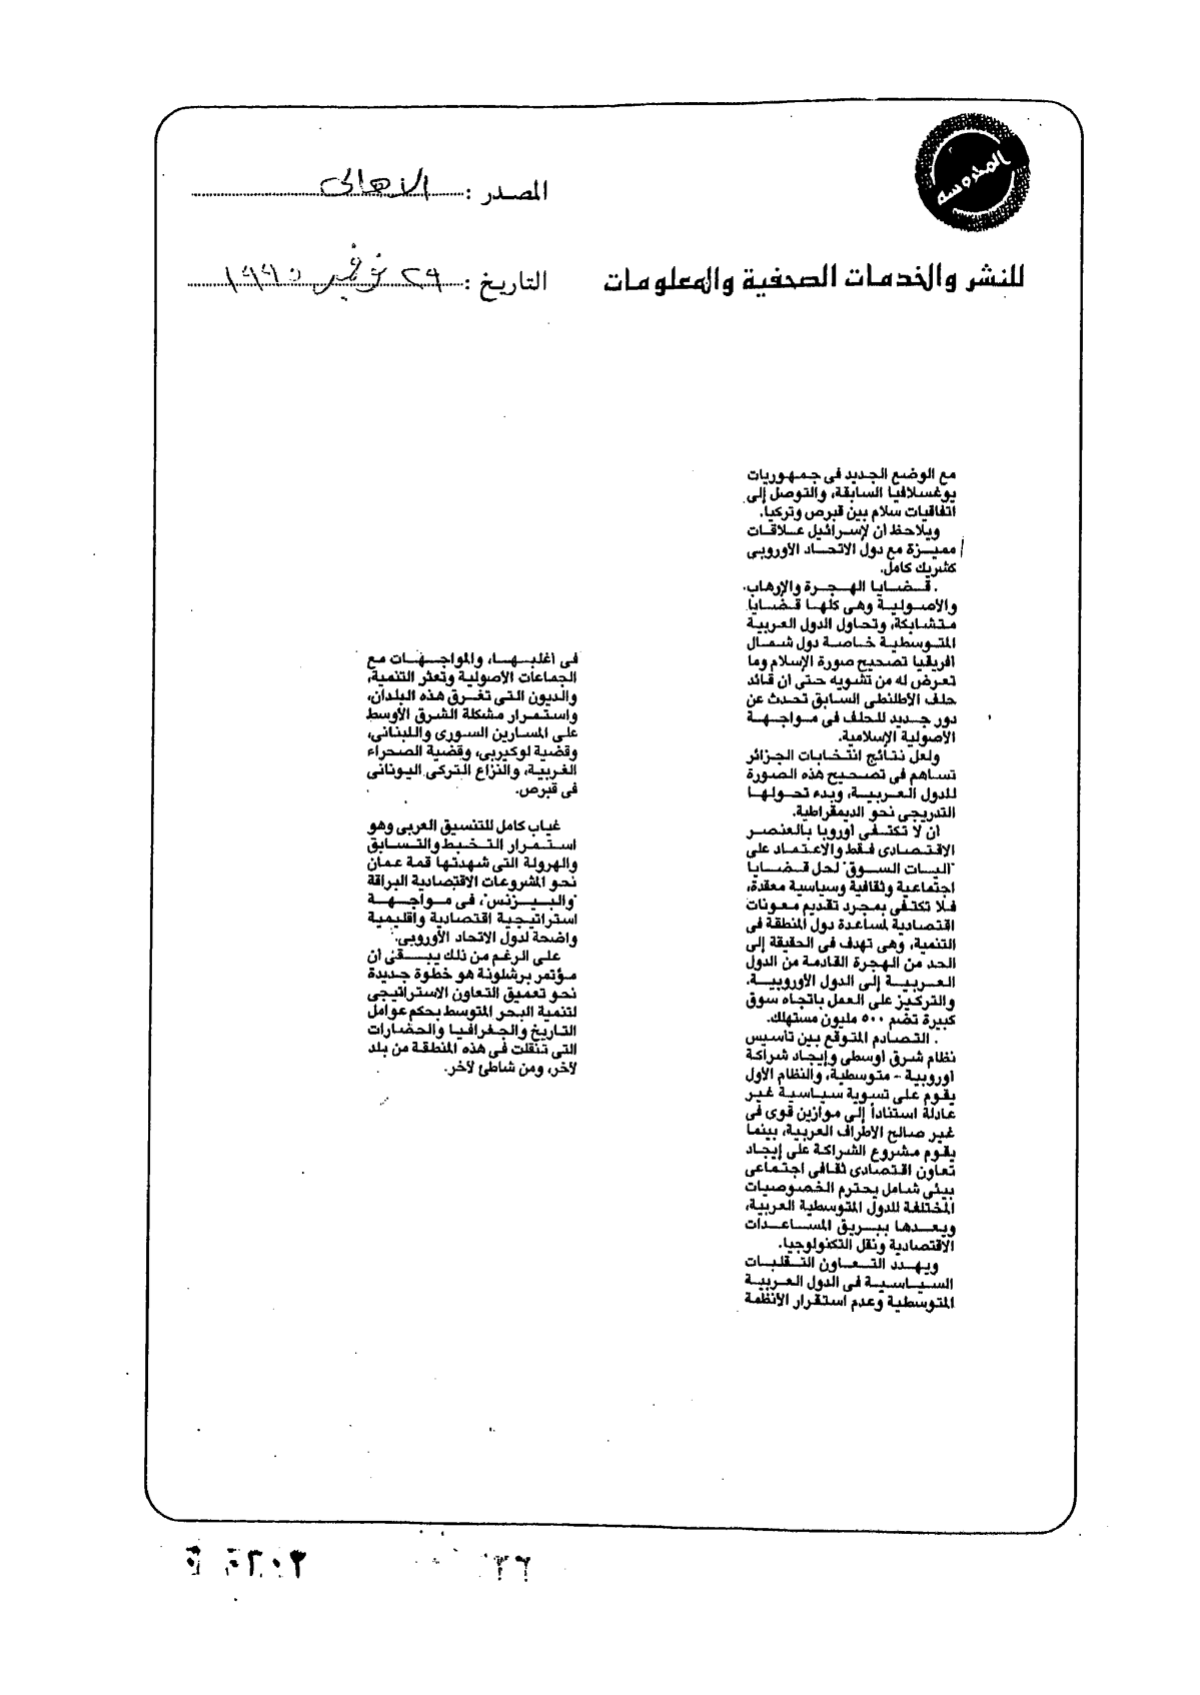 المحروسة
للنشر والخدمات الصحفية والمعلومات
المصدر : الأهالى
التاريخ : ٢٩ نوفمبر ١٩٩٥
مع الوضع الجديد فى جمهوريات
يوغسلافيا السابقة، والتوصل إلى
اتفاقيات سلام بين قبرص وتركيا.
ويلاحظ ان لإسرائيل علاقات
مميزة مع دول الاتحاد الأوروبى
كشريك كامل.
. قضايا الهجرة والإرهاب.
والأصولية وهى كلها قضايا
متشابكة، وتحاول الدول العربية
المتوسطية خاصة دول شمال
افريقيا تصحيح صورة الإسلام وما
تعرض له من تشويه حتى ان قائد
حلف الأطلنطى السابق تحدث عن
دور جديد للحلف فى مواجهة
الأصولية الإسلامية.
ولعل نتائج انتخابات الجزائر
تساهم فى تصحيح هذه الصورة
للدول العربية، وبدء تحولها
التدريجى نحو الديمقراطية.
ان لا تكتفى أوروبا بالعنصر
الاقتصادى فقط والاعتماد على
"اليات السوق" لحل قضايا
اجتماعية وثقافية وسياسية معقدة،
فلا تكتفى بمجرد تقديم معونات
اقتصادية لمساعدة دول المنطقة فى
التنمية، وهى تهدف فى الحقيقة إلى
الحد من الهجرة القادمة من الدول
العربية إلى الدول الأوروبية.
والتركيز على العمل باتجاه سوق
كبيرة تضم ٥٠٠ مليون مستهلك.
. التصادم المتوقع بين تأسيس
نظام شرق أوسطى وإيجاد شراكة
أوروبية - متوسطية، والنظام الأول
يقوم على تسوية سياسية غير
عادلة استنادأ إلى موازين قوى فى
غير صالح الأطراف العربية، بينما
يقوم مشروع الشراكة على إيجاد
تعاون اقتصادى ثقافى اجتماعى
بيئى شامل يحترم الخصوصيات
المختلفة للدول المتوسطية العربية،
ويعدها ببريق المساعدات
الاقتصادية ونقل التكنولوجيا.
ويهدد التعاون التقلبات
السياسية فى الدول العربية
المتوسطية وعدم استقرار الأنظمة
فى أغلبها، والمواجهات مع
الجماعات الأصولية وتعثر التنمية،
والديون التى تغرق هذه البلدان،
واستمرار مشكلة الشرق الأوسط
على المسارين السورى واللبنانى،
وقضية لوكيربى، وقضية الصحراء
الغربية، والنزاع التركى اليونانى
فى قبرص.
غياب كامل للتنسيق العربى وهو
استمرار التخبط والتسابق
والهرولة التى شهدتها قمة عمان
نحو المشروعات الاقتصادية البراقة
"والبيزنس"، فى مواجهة
استراتيجية اقتصادية واقليمية
واضحة لدول الاتحاد الأوروبى.
على الرغم من ذلك يبقى ان
مؤتمر برشلونة هو خطوة جديدة
نحو تعميق التعاون الاستراتيجى
لتنمية البحر المتوسط بحكم عوامل
التاريخ والجغرافيا والحضارات
التى تنقلت فى هذه المنطقة من بلد
لآخر، ومن شاطئ لآخر.